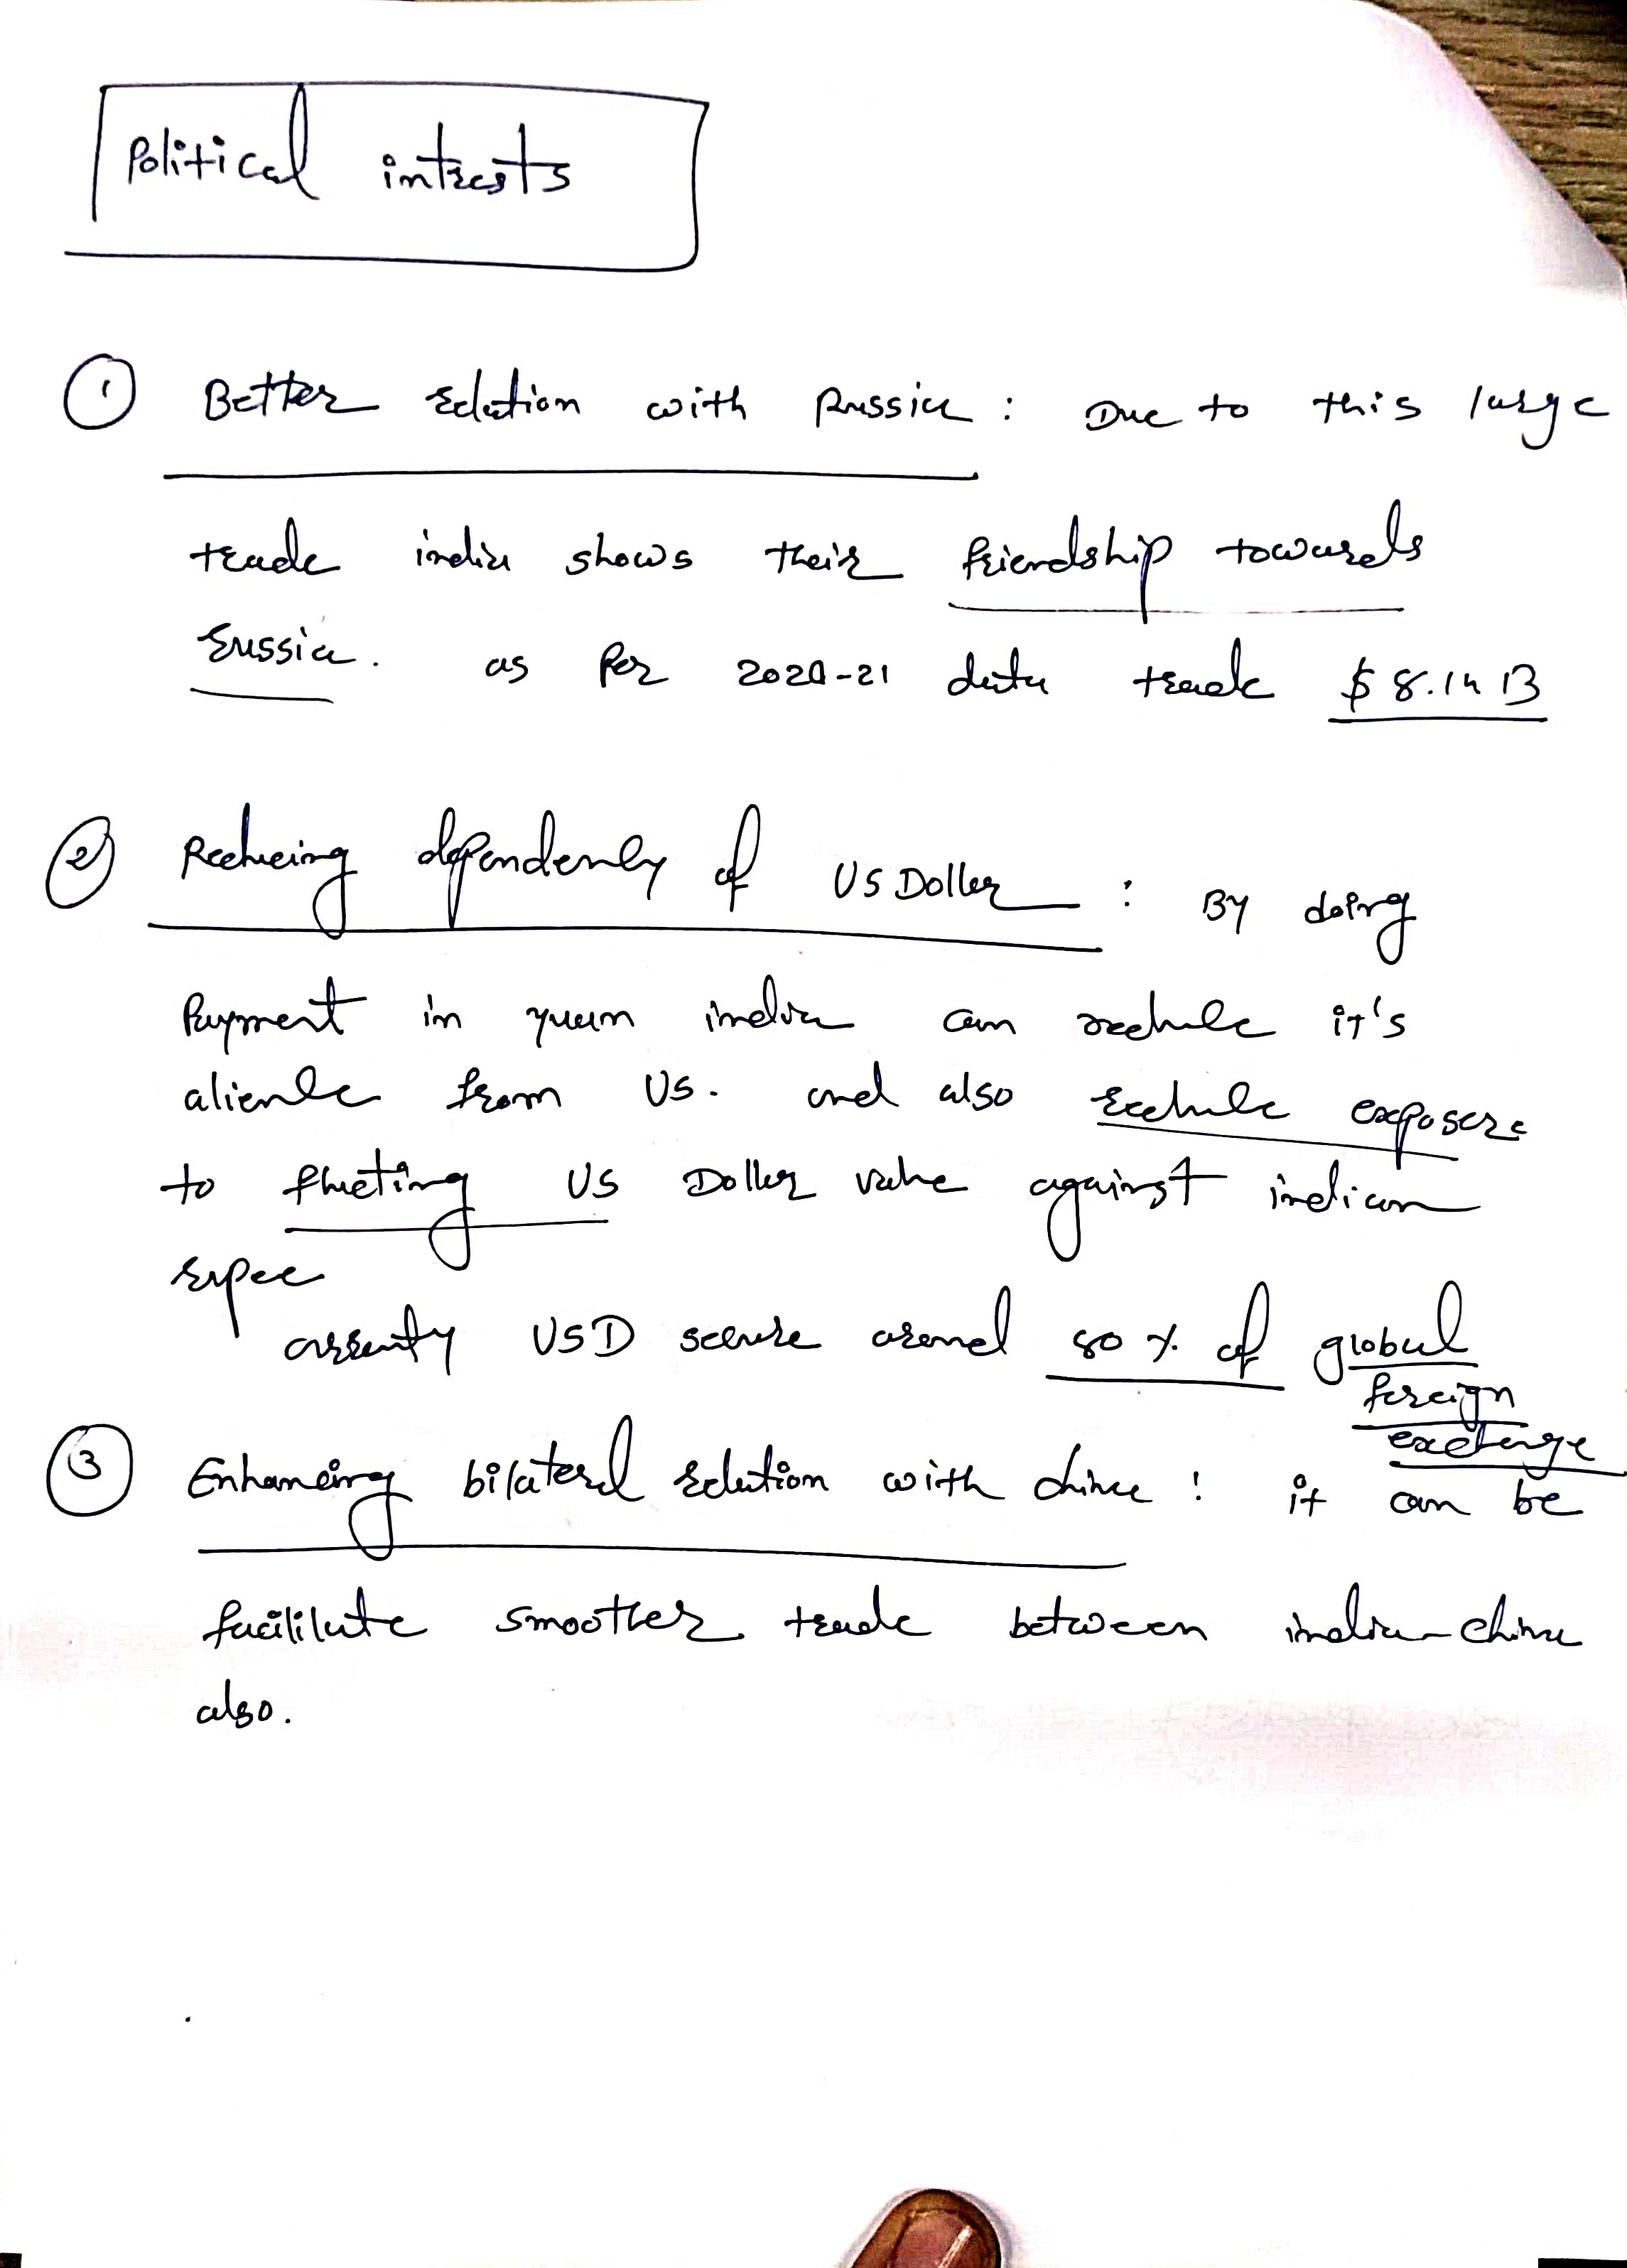 Political intrests
① Better relation with Russia : Due to this large
trade india shows their friendship towards
russia. as Per 2020-21 data trade $ 8.14 B
② Reducing dependency of US Doller : By doing
Payment in yuan india can reduce it's
alience from US. and also reduce exposere
to US Doller value against indian
rupee
USD secure 80 % of global
foreign
③ Enhancing bilateral relation with china : it can be
facililate smoother trade between india-china
also.